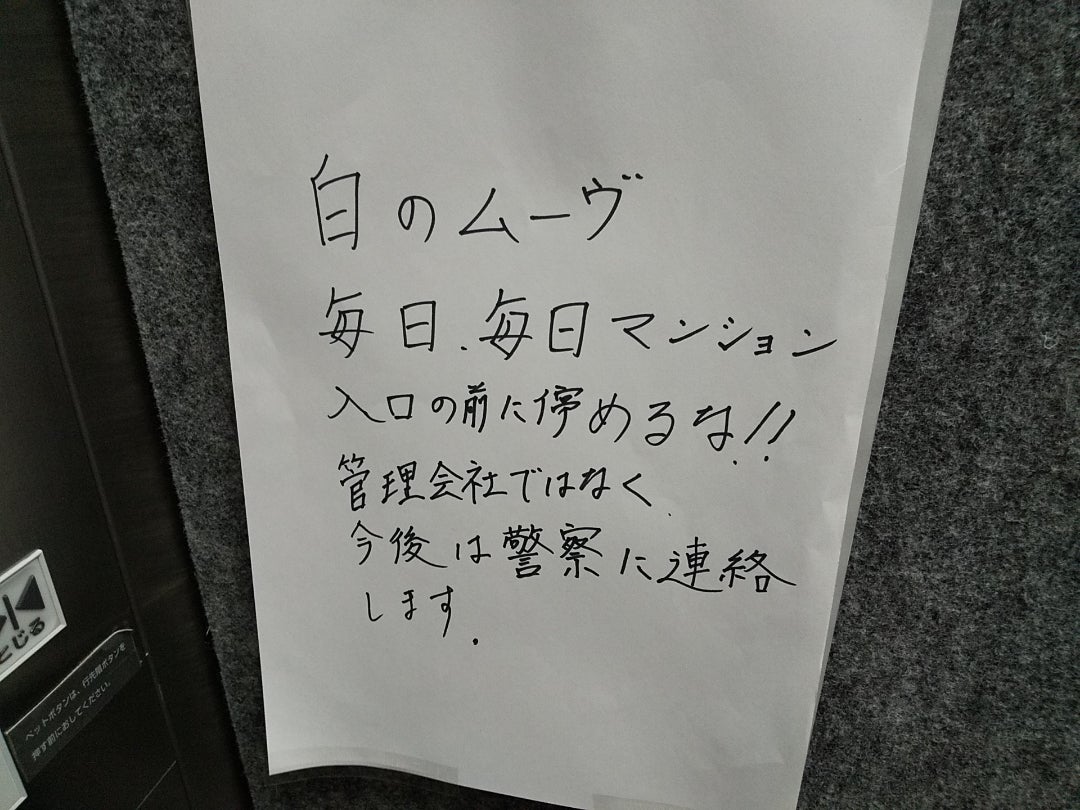 白のムーヴ
毎日.毎日マンション
入口の前に停めるな!!
管理会社ではなく
今後は警察に連絡
します.
とじる
ペットボタンは、行先階ボタンを
押す前におしてください。